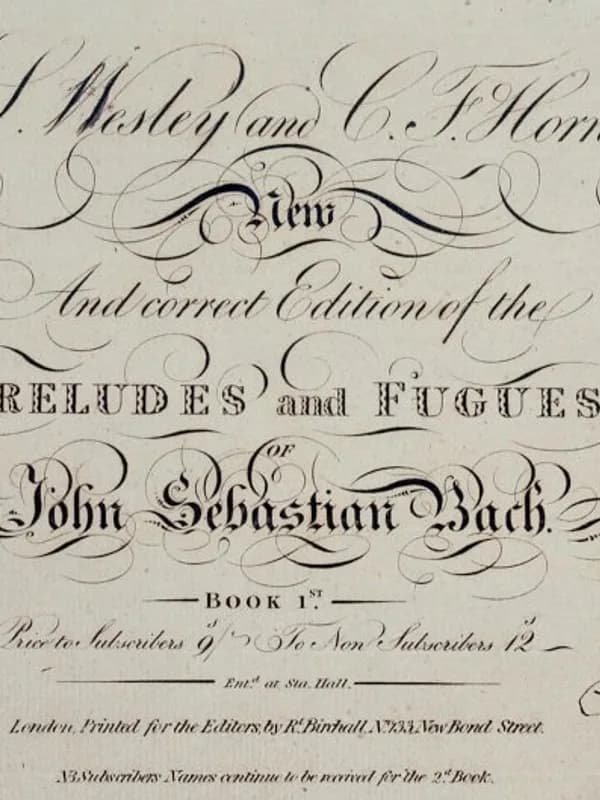 S. Wesley and C. F. Horn
New
And correct Edition of the
RELUDES and FUGUES
OF
John Sebastian Bach.
BOOK 1.ST
Price to Subscribers 9/ To Non Subscribers 12
Ent.d at Sta. Hall.
London, Printed for the Editors, by R.t Birchall, No. 133, New Bond Street.
NB Subscribers Names continue to be received for the 2.d Book.